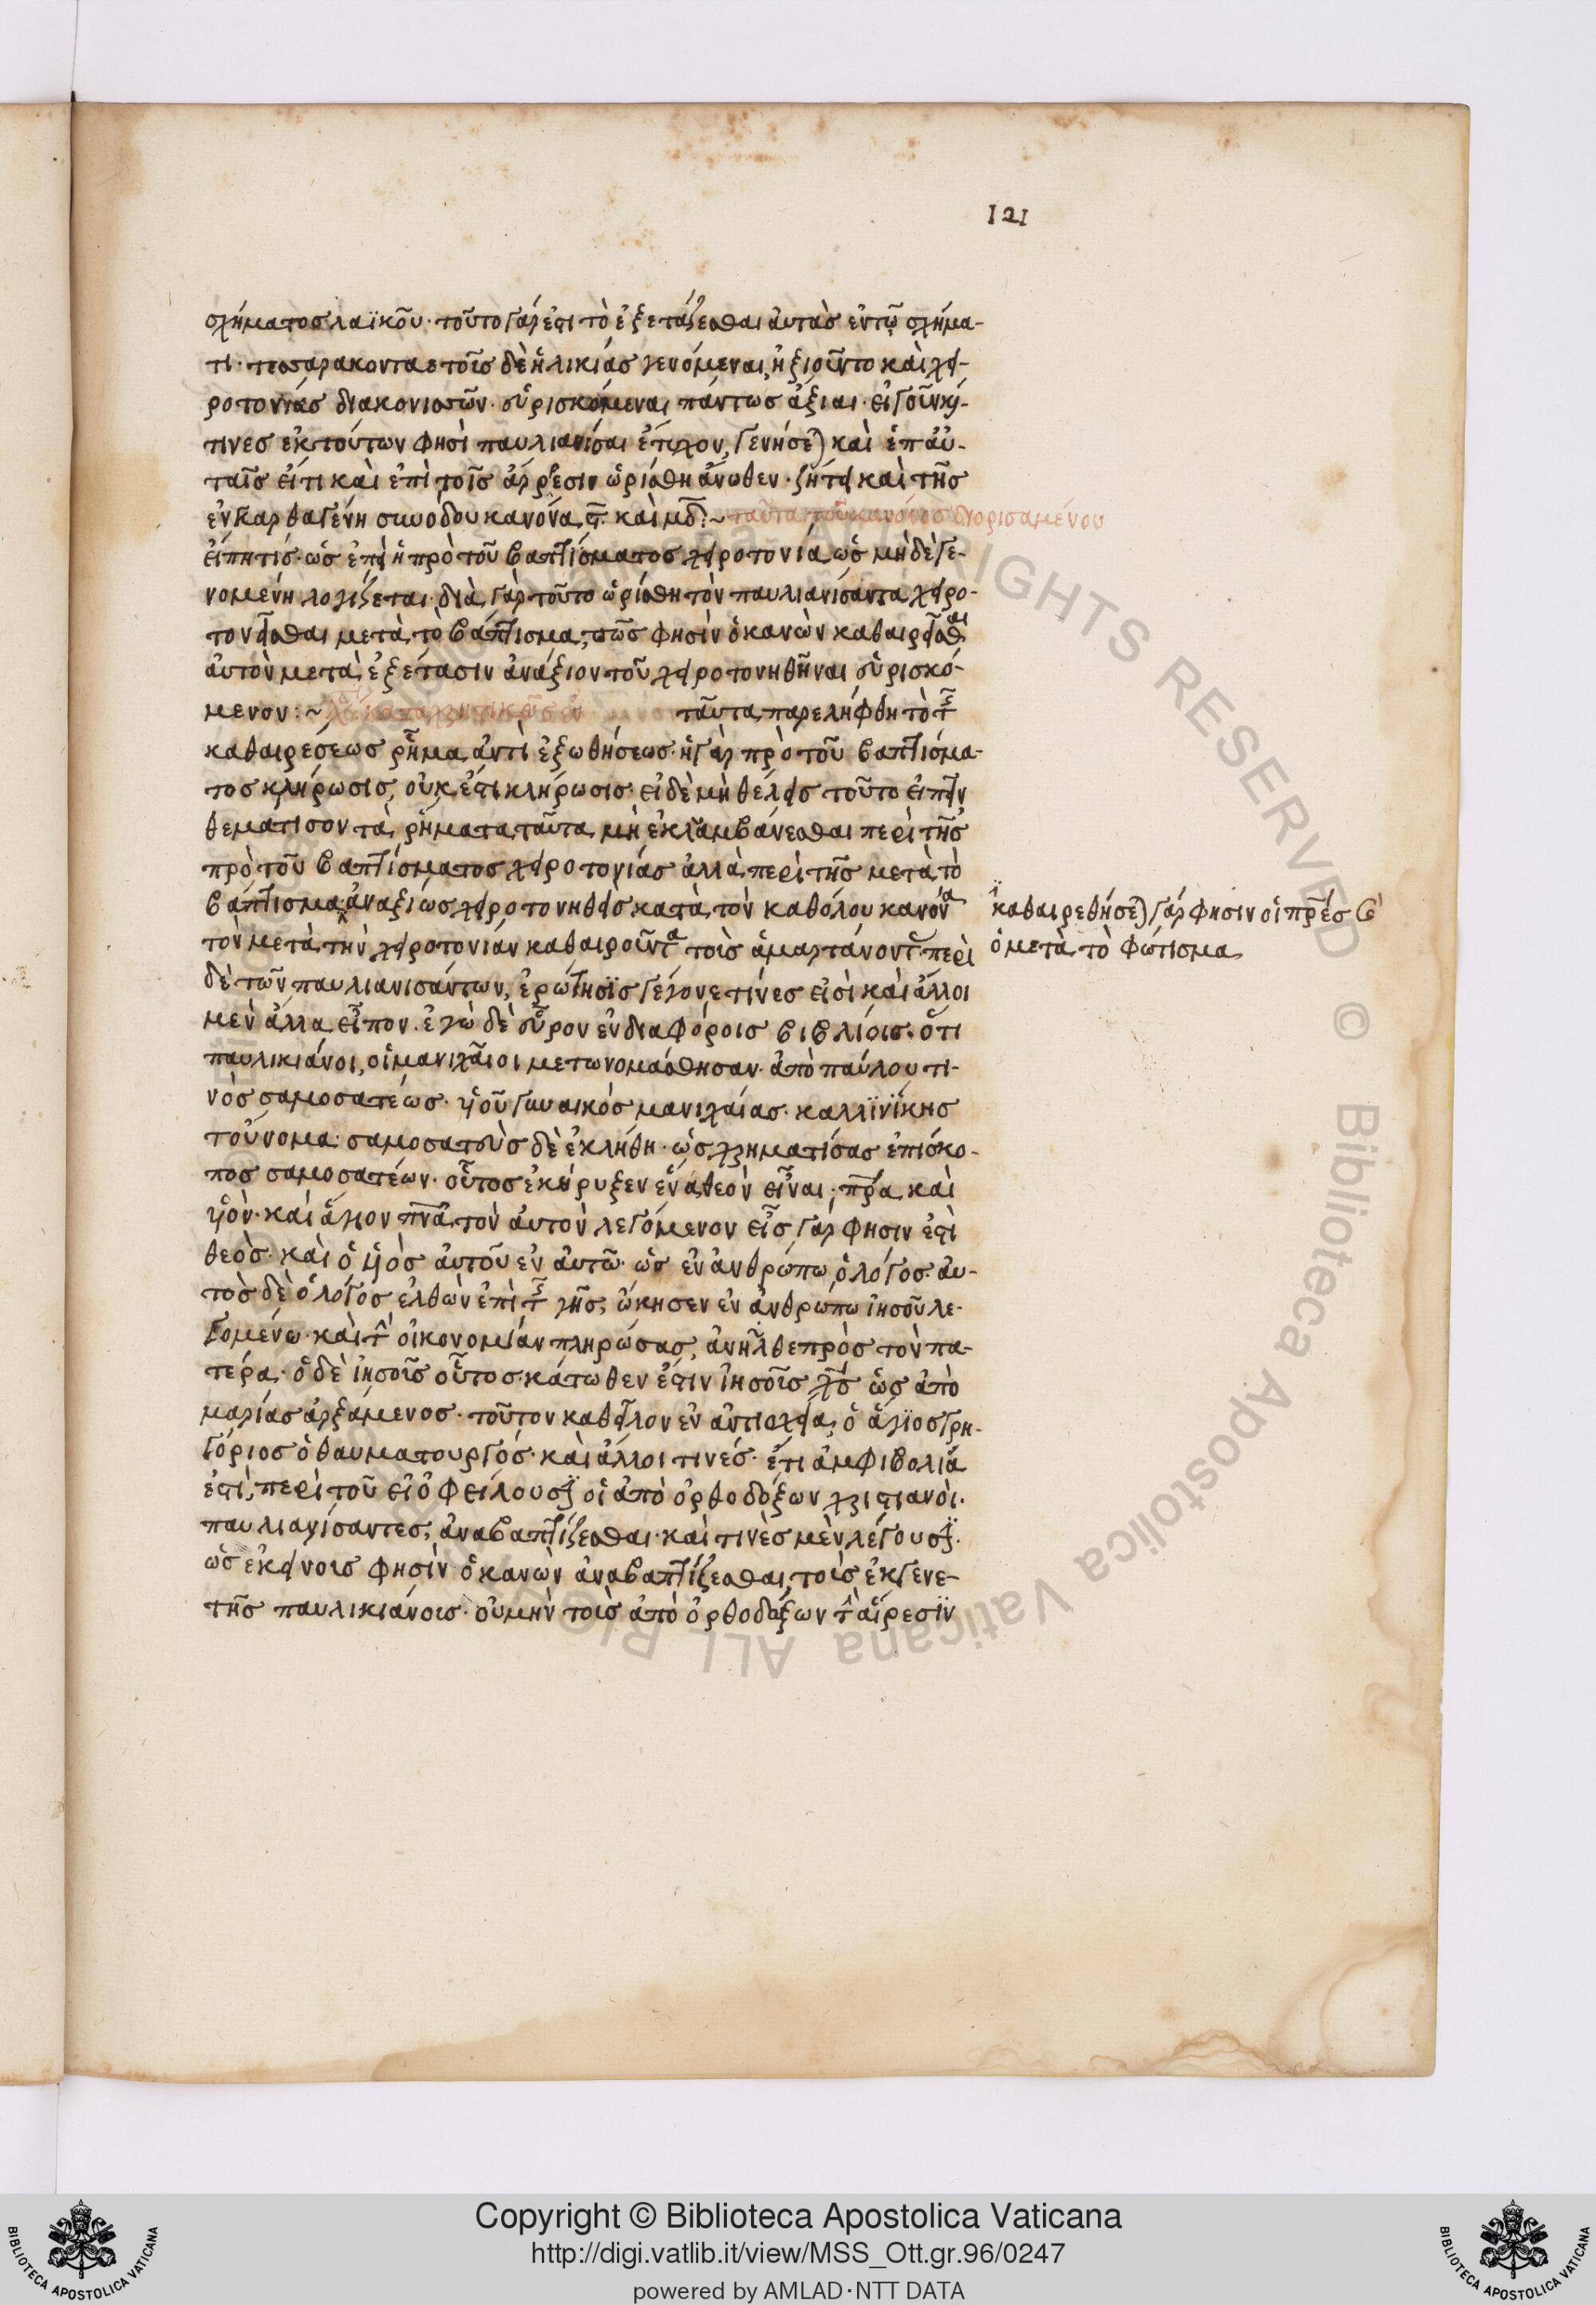 121
σχήματος λαϊκοῦ· τοῦτο γάρ ἐστι τὸ ἐξετάζεσθαι ἀυτὰς ἐν τῷ σχήμα-
τι· τεσσαρακονταετοῖς δὲ ἡλικίας γενόμεναι, ἠξιοῦντο καὶ χει-
ροτονίας διακονισσῶν· εὑρισκόμεναι πάντως ἀξιαι· εἰ γοῦν καί
τινες ἐκ τούτων φησὶ παυλιανίσαι ἔτυχον, γενήσεται καὶ ἐπ' ἀυ-
ταῖς εἴ τι καὶ ἐπὶ τοῖς ἄρρεσιν ὡρίσθη ἄνωθεν· ζήτει καὶ τῆς
ἐν Καρθαγένη συνόδου κανόνα, ϛ̅. καὶ μδ̅:~ ταῦτα τοῦ κανόνος διορισαμένου
εἴπη τίς· ὡς ἐπεὶ ἡ πρὸ τοῦ βαπτίσματος χειροτονία ὡς μὴ δὲ γε-
νομένη λογίζεται· διὰ γὰρ τοῦτο ὡρίσθη τὸν παυλιανίσαντα χειρο-
τονεῖσθαι μετὰ τὸ βάπτισμα, πῶς φησὶν ὁ κανὼν καθαιρεῖσθαι
ἀυτὸν μετὰ ἐξέτασιν ἀνάξιον τοῦ χειροτονηθῆναι εὑρισκό-
μενον:~ ταῦτα παρελήφθη τὸ τῆς
καθαιρέσεως ῥῆμα ἀντὶ ἐξωθήσεως· ἡ γὰρ πρὸ τοῦ βαπτίσμα-
τος κλήρωσις, οὐκ ἔστι κλήρωσις· εἰ δὲ μὴ θέλεις τοῦτο εἰπεῖν
θεμάτισον τὰ ῥήματα ταῦτα μὴ ἐκλαμβάνεσθαι περὶ τῆς
πρὸ τοῦ βαπτίσματος χειροτονίας ἀλλὰ περὶ τῆς μετὰ τὸ
βάπτισμα ἀναξίως χειροτονηθεὶς κατὰ τὸν καθόλου κανόνα
τὸν μετὰ τὴν χειροτονίαν καθαιροῦντα τοὺς ἁμαρτάνοντας· περὶ
δὲ τῶν παυλιανισάντων, ἐρώτησϊς γέγονε τίνες εἰσὶ καὶ ἄλλοι
μὲν ἄλλα εἶπον· ἐγὼ δὲ εὗρον ἐν διαφόροις βιβλίοις· ὅτι
παυλικιάνοι, οἱ μανιχαῖοι μετωνομάσθησαν· ἀπὸ παύλου τι-
νὸς σαμοσατέως· υἱοῦ γυναικός μανιχαίας· καλλϊνίκης
τοὔνομα· σαμοσατεὺς δὲ ἐκλήθη· ὡς χρηματίσας ἐπίσκο-
πος σαμοσατέων· οὗτος ἐκήρυξεν ἕνα θεὸν εἶναι· πρ̅α καὶ
υἱὸν· καὶ ἅγιον πν̅α τὸν ἀυτὸν λεγόμενον εἷς γάρ φησιν ἐστὶ
θεὸς· καὶ ὁ υἱὸς ἀυτοῦ ἐν ἀυτῶ· ὡς ἐν ἀνθρώπω ὁ λόγος· ἀυ-
τὸς δὲ ὁ λόγος ἐλθὼν ἐπὶ τῆς γῆς, ὤκησεν ἐν ἀνθρώπω ἰησοῦ λε-
γομένω· καὶ τὴν οἰκονομίαν πληρώσας, ἀνῆλθε πρὸς τὸν πα-
τέρα· ὁ δὲ ἰησοῦς οὗτος κάτωθεν ἔστιν Ἰησοῦς χ̅ς ὡς ἀπὸ
μαρίας ἀρξάμενος· τοῦτον καθεῖλον ἐν ἀντιοχεία, ὁ ἅγϊος γρη-
γόριος ὁ θαυματουργός· καὶ ἄλλοι τινές· ἔτι ἀμφιβολία
ἐστὶ, περὶ τοῦ εἰ ὀφείλουσϊν οἱ ἀπὸ ὀρθοδόξων χριστιανοὶ.
παυλιανίσαντες, ἀναβαπτίζεσθαι· καὶ τινὲς μὲν λέγουσϊν.
ὡς ἐκείνους φησὶν ὁ κανὼν ἀναβαπτίζεσθαι, τοὺς ἐκ γενε-
τῆς παυλικιάνους· οὐ μὴν τοὺς ἀπὸ ὀρθοδόξων τὴν αἵρεσϊν
καθαιρεθήσεται γάρ φησιν οἱ πρ̅ες
ὁ μετὰ τὸ φώτισμα
Copyright © Biblioteca Apostolica Vaticana
http://digi.vatlib.it/view/MSS_Ott.gr.96/0247
powered by AMLAD·NTT DATA
BIBLIOTECA APOSTOLICA VATICANA
BIBLIOTECA APOSTOLICA VATICANA
© Biblioteca Apostolica Vaticana ALL RIGHTS RESERVED